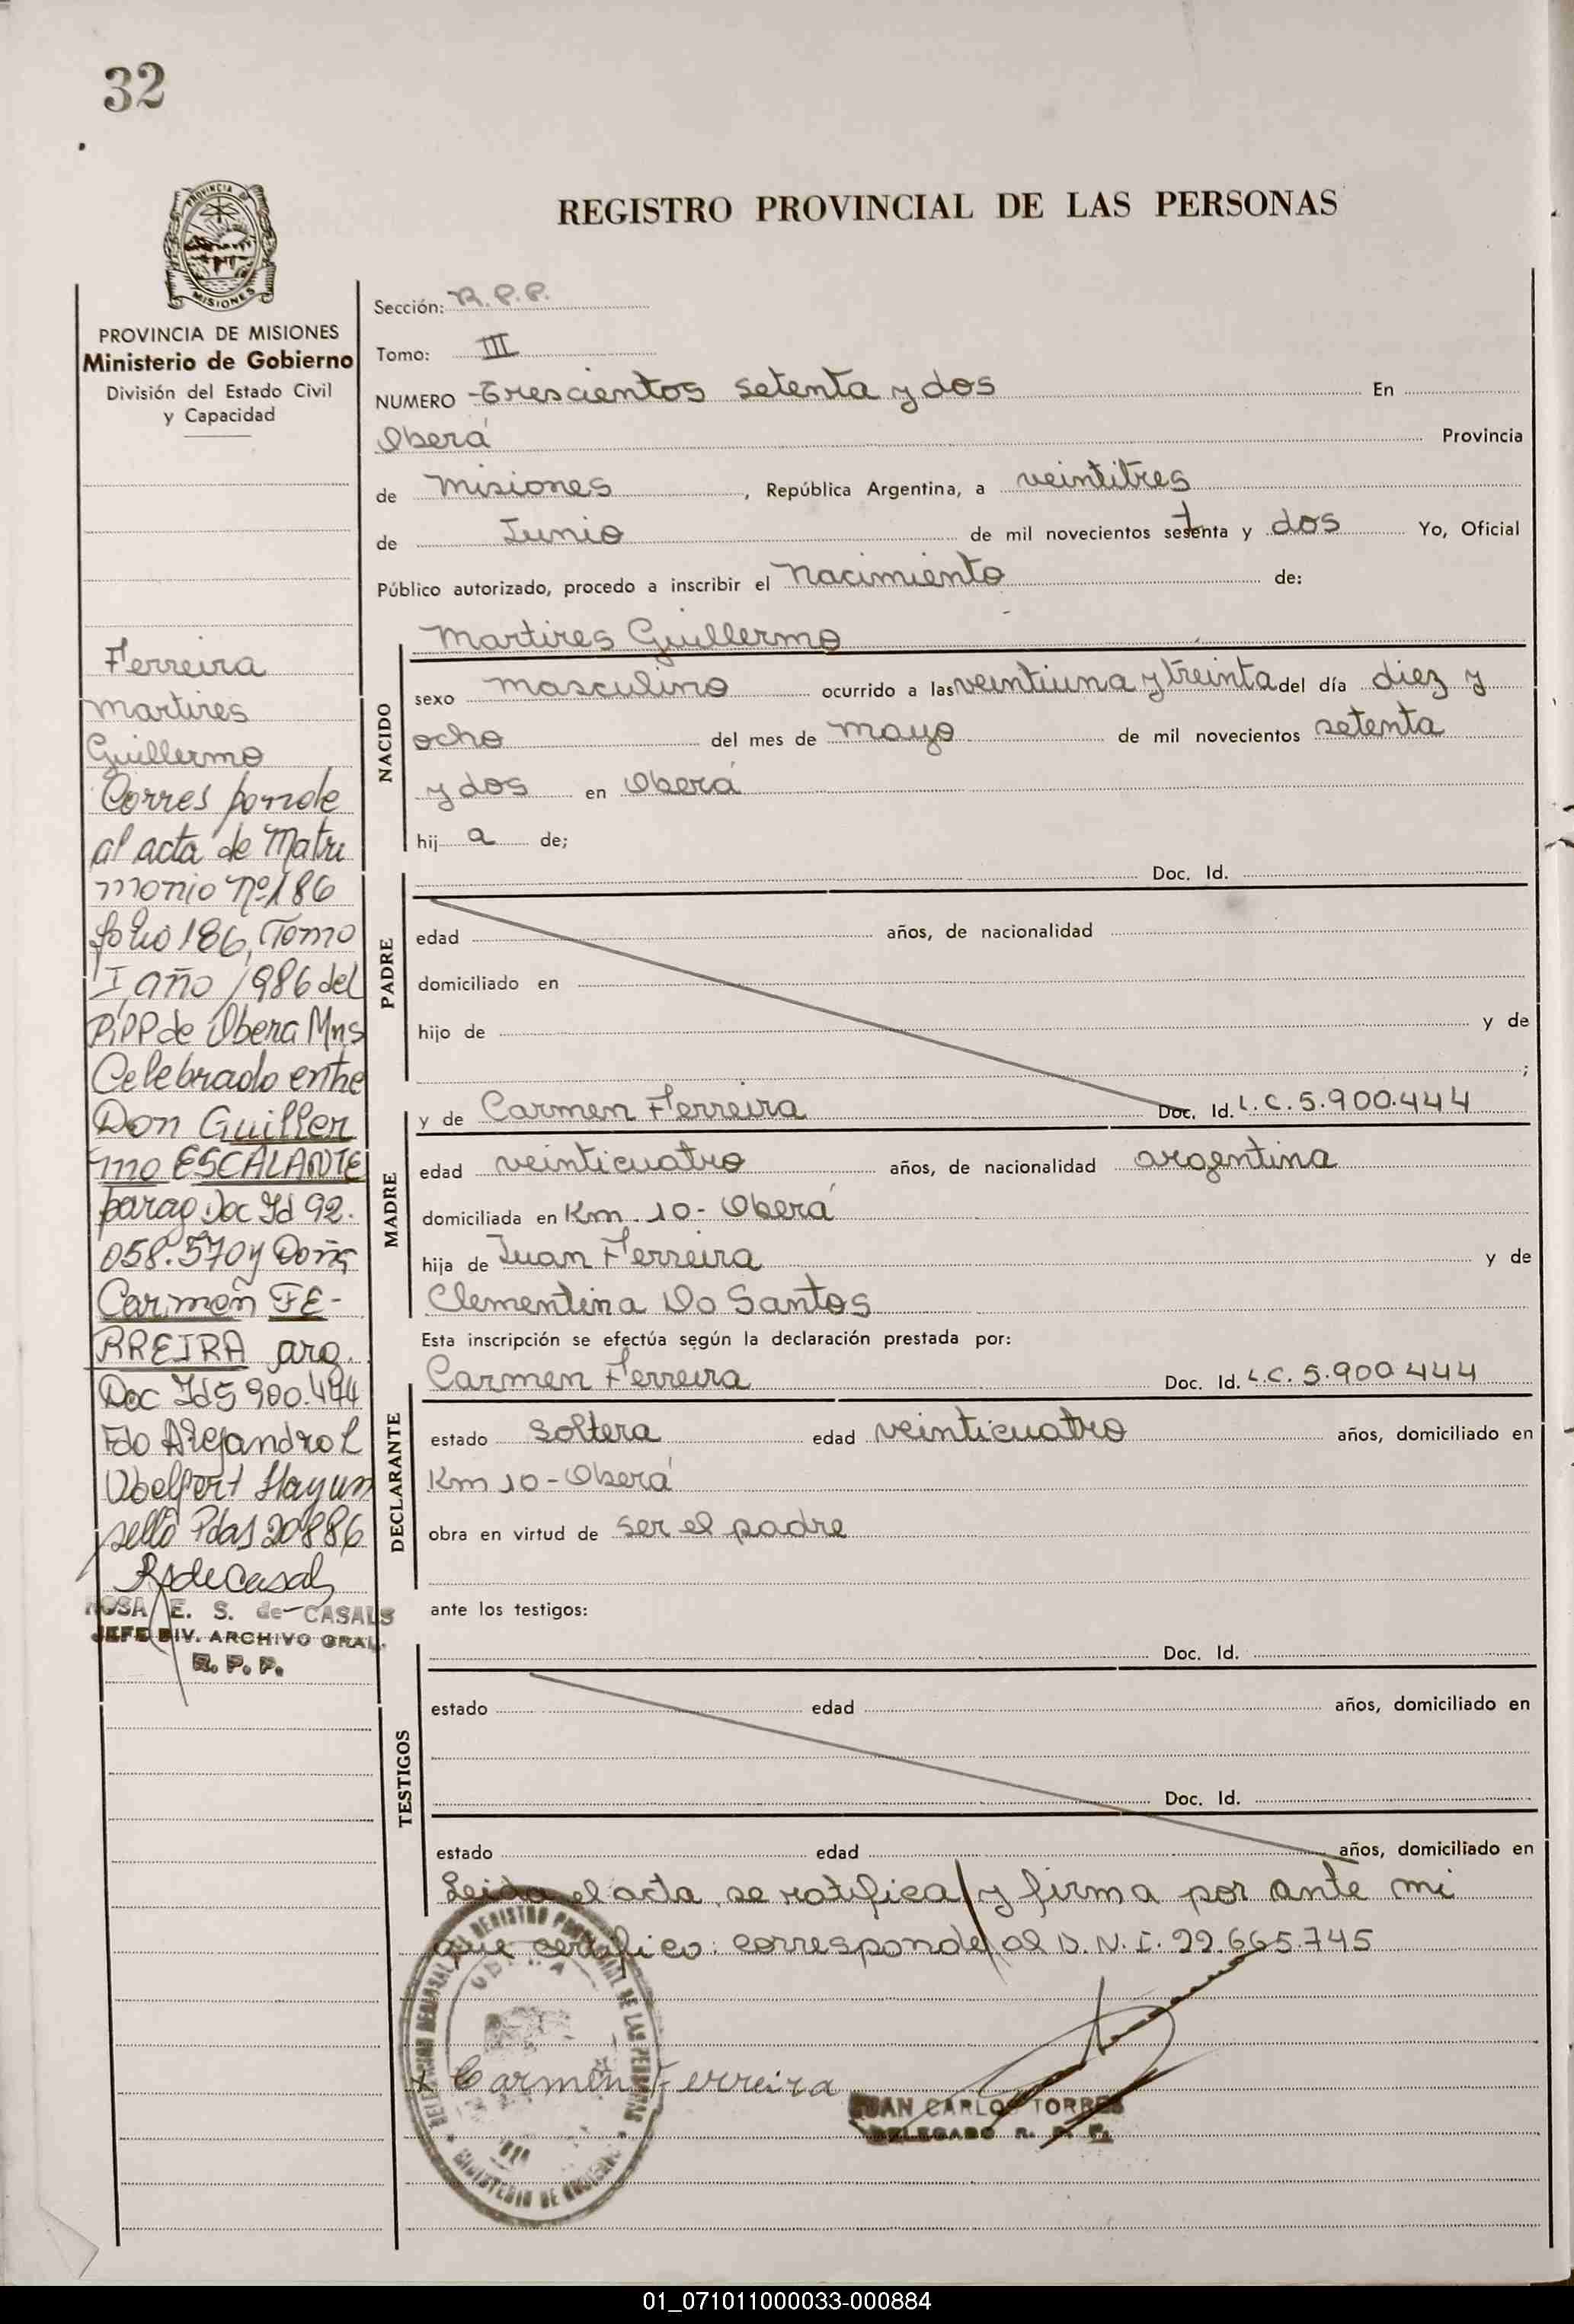 32
PROVINCIA DE
MISIONES
REGISTRO PROVINCIAL DE LAS PERSONAS
PROVINCIA DE MISIONES
Ministerio de Gobierno
División del Estado Civil
y Capacidad
Ferreira
Martires
Guillermo
Corresponde
al acta de Matri
monio Nº 186
folio 186, Tomo
I, año 1986 del
RPP de Obera Mns
Celebrado entre
Don Guiller
mo ESCALANTE
parag Doc Id 92.
058.570 y Doña
Carmen FE-
RREIRA arg.
Doc Id 5 900.444
Fdo Alejandro L
sello Pdas 20886
RsdeCasals
ROSA E. S. de CASALS
JEFE DIV. ARCHIVO GRAL.
R. P. P.
Sección: R.P.P.
Tomo: III
NUMERO Trescientos setenta y dos En
Oberá Provincia
de Misiones, República Argentina, a veintitres
de Junio de mil novecientos setenta y dos Yo, Oficial
Público autorizado, procedo a inscribir el Nacimiento de:
Martires Guillermo
NACIDO
sexo masculino ocurrido a las veintiuna y treinta del día diez y
ocho del mes de mayo de mil novecientos setenta
y dos en Oberá
hij a de;
Doc. Id.
PADRE
edad años, de nacionalidad
domiciliado en
hijo de y de
;
y de Carmen Ferreira Doc. Id. L.C. 5.900.444
MADRE
edad veinticuatro años, de nacionalidad argentina
domiciliada en Km. 10 - Oberá
hija de Juan Ferreira y de
Clementina Do Santos
Esta inscripción se efectúa según la declaración prestada por:
Carmen Ferreira Doc. Id. L.C. 5.900 444
DECLARANTE
estado Soltera edad veinticuatro años, domiciliado en
Km 10 - Oberá
obra en virtud de ser el padre
ante los testigos:
Doc. Id.
TESTIGOS
estado edad años, domiciliado en
Doc. Id.
estado edad años, domiciliado en
Leida el acta se ratifica y firma por ante mi
que certifico: corresponde al D.N.I. 22.665.745
x Carmen Ferreira
JUAN CARLOS TORRES
DELEGADO R. P. P.
01_071011000033-000884